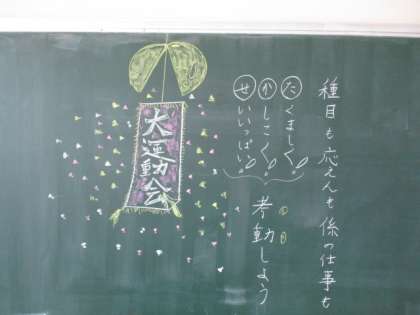 種目も応えんも係の仕事も
たくましく
かしこく
せいいっぱい
考動しよう
大運動会